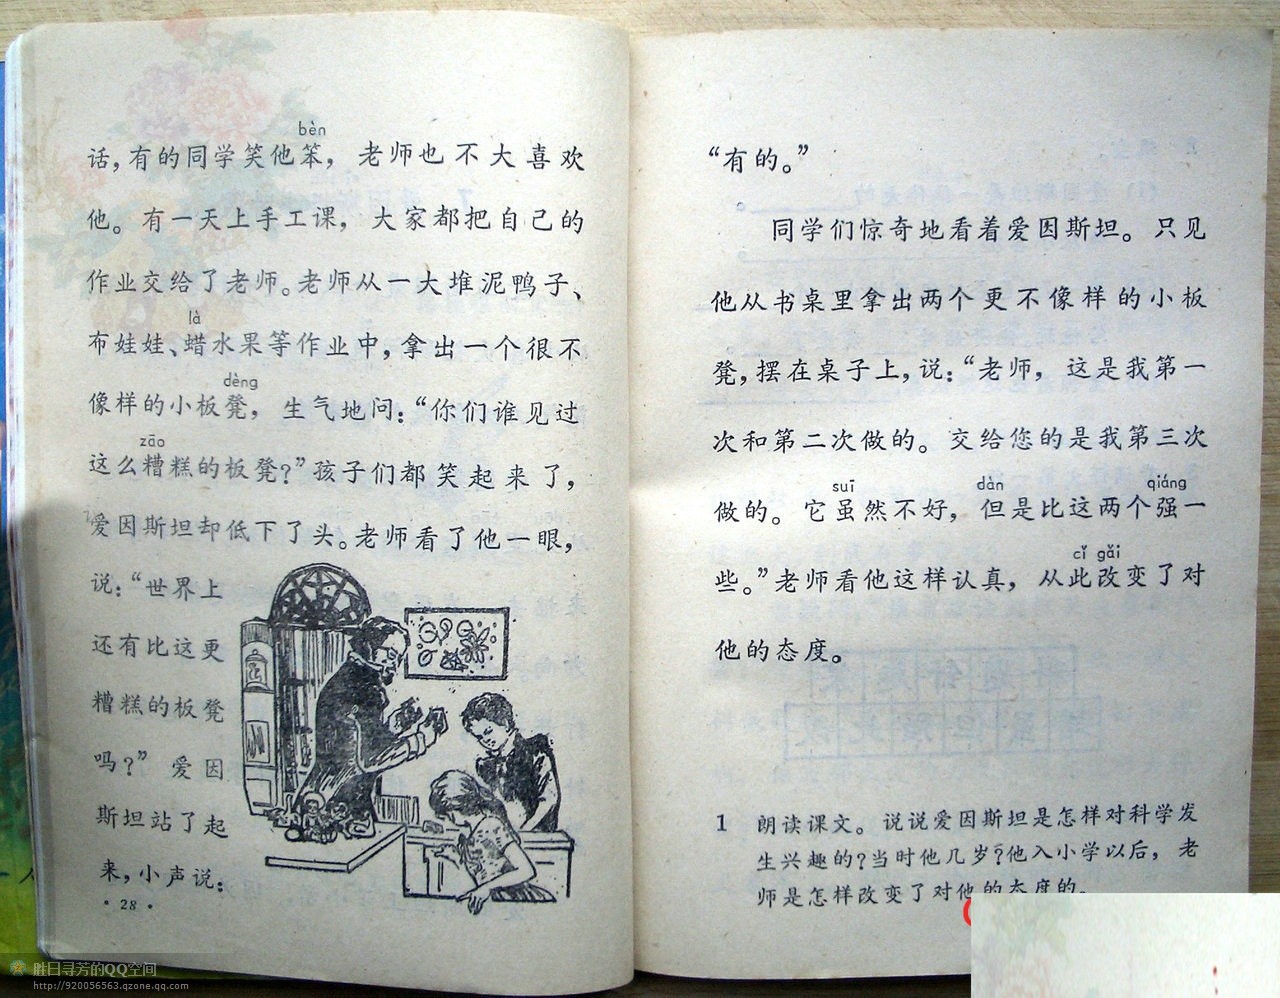 bèn
话，有的同学笑他笨，老师也不大喜欢
他。有一天上手工课，大家都把自己的
作业交给了老师。老师从一大堆泥鸭子、
là
布娃娃、蜡水果等作业中，拿出一个很不
dèng
像样的小板凳，生气地问：“你们谁见过
zāo
这么糟糕的板凳？”孩子们都笑起来了，
爱因斯坦却低下了头。老师看了他一眼，
说：“世界上
还有比这更
糟糕的板凳
吗？”爱因
斯坦站了起
来，小声说：
·28·
“有的。”
同学们惊奇地看着爱因斯坦。只见
他从书桌里拿出两个更不像样的小板
凳，摆在桌子上，说：“老师，这是我第一
次和第二次做的。交给您的是我第三次
suī dàn qiáng
做的。它虽然不好，但是比这两个强一
cǐ gǎi
些。”老师看他这样认真，从此改变了对
他的态度。
1 朗读课文。说说爱因斯坦是怎样对科学发
生兴趣的？当时他几岁？他入小学以后，老
师是怎样改变了对他的态度的。
胜日寻芳的QQ空间
http://920056563.qzone.qq.com